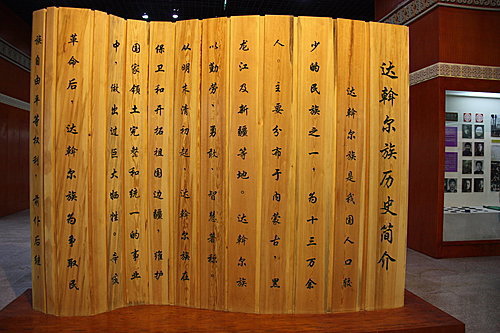 达斡尔族历史简介
达斡尔族是我国人口较
少的民族之一，为十三万余
人。主要分布于内蒙古，黑
龙江及新疆等地。达斡尔族
以勤劳、勇敢、智慧著称。
从明末清初起，达斡尔族在
保卫和开拓祖国边疆，维护
国家领土完整和统一的事业
中，做出过巨大牺牲。辛亥
革命后，达斡尔族为争取民
族自由平等权利，前仆后继